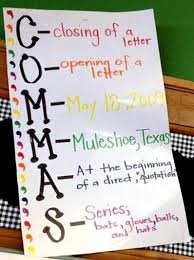 C-closing of a
letter
O-opening of a
letter
M-May 18, 2009
M-Muleshoe, Texas
A-At the beginning
of a direct, "quotation"
S-Series;
bats, gloves, balls,
and hats